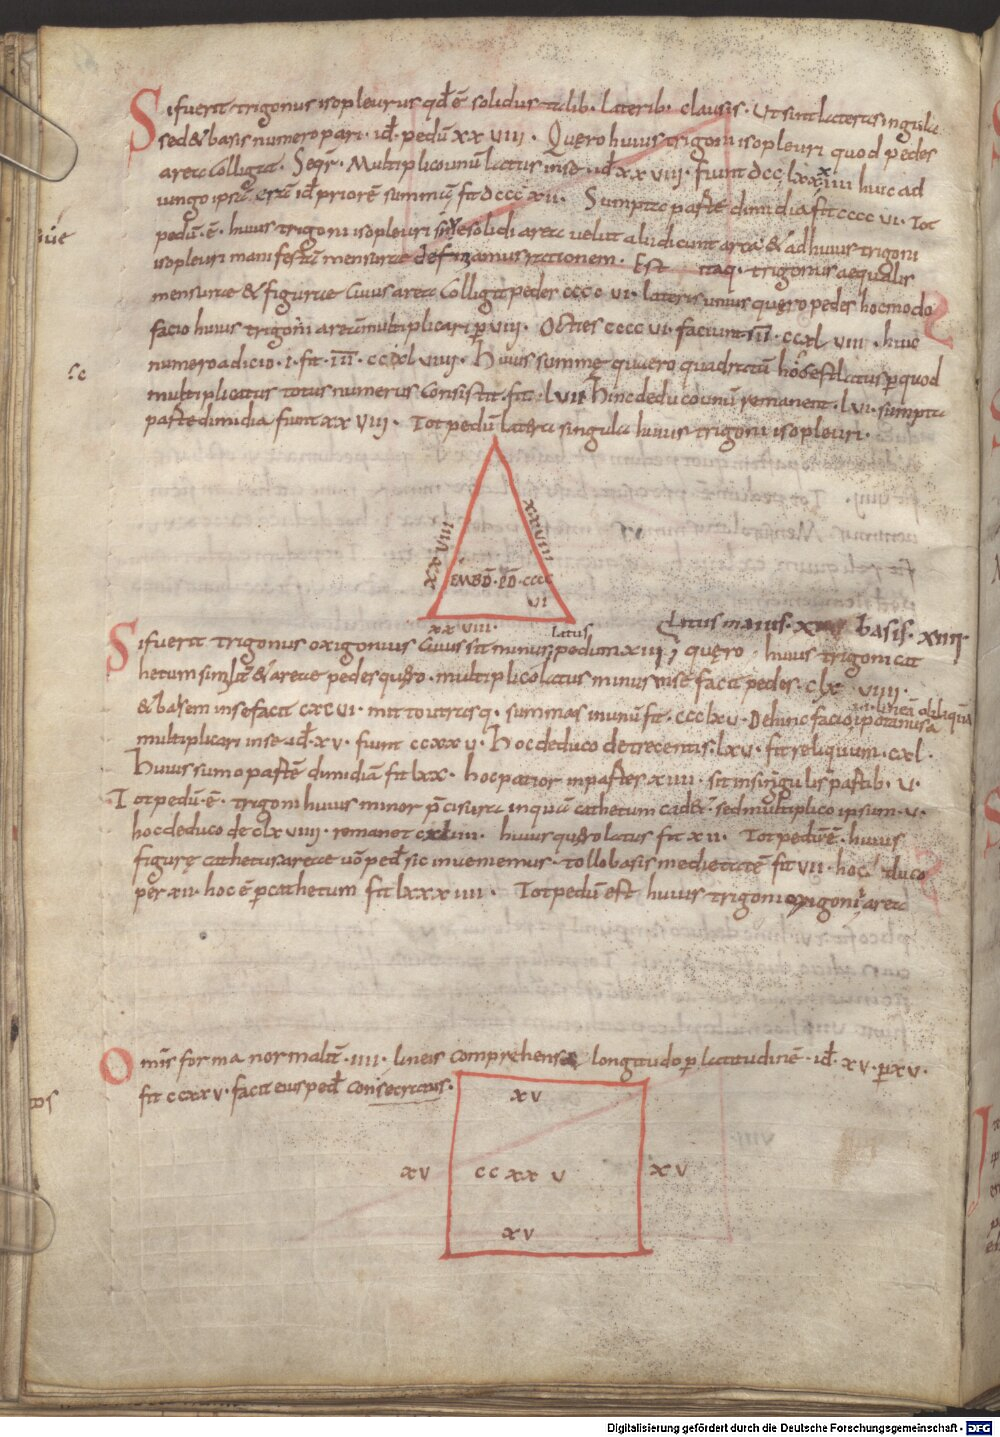 Si fuerit trigonus isopleurus qd ē solidus talib· laterib· clausis· Ut sint latera singula
sed & basis numero pari· id· pedū xx viii· Quęro huius trigoni isopleuri quod pedes
area colligat· Seqr· Multiplico unū latus in se id xx viii· fiunt dcc lxxxiiii huic ad
iungo ipsā id priorē summā fit dccc xii· Sumpta parte dimidia fit cccc vi· Tot
pedū· ē· huius trigoni isopleuri solidi area velut alii dicunt & ad huius trigoni
isopleuri manifestā mensurae definiamus rationem· Est itaq· trigonus aequalis
mensurae & figurae cuius area colligit pedes cccc vi· lateris unius quęro pedes hoc modo
facio huius trigoni areā multiplicari p viii· Octies cccc vi· faciunt iii· ccxl viii· huic
numero adicio· i· fit· iii· ccxl viiii· Huius summę quero quadratū hoc est latus p quod
multiplicatus totus numerus consistit· fit· lvii Hinc deduco unū remanent· lvi· sumpta
parte dimidia fiunt xx viii· Tot pedū latera singula huius trigoni isopleuri·
xx viii
xx viii
EMBD· PD· cccc
vi
xx viii·
Latus maius· xv basis· xiiii
Latus
Si fuerit trigonus oxigonius cuius sit minus pedum xiii; quęro· huius trigoni cat
hetum similit & areae pedes quęro· multiplico latus minus in se facit pedes· clx viiii·
& basem in se facit cxcvi· mitto utrasq· summas in unū fit· ccclxv· Dehinc facio ipotanusa
i· lineā obliquā
multiplicari in se id· xv· fiunt ccxxv· Hoc deduco de trecentis· lxv· fit reliquum· cxl·
Huius sumo partē dimidiā fit lxx· hoc partior in partes xiiii· sit in singulis partib· v·
Tot pedū· ē· trigoni huius minor pcisura in quā cathetum cadet· sed multiplico ipsum· v·
hoc deduco de clx viiii· remanet cxliiii· huius quęro latus fit xii· Tot pedū ē· huius
figurę cathetus areae vō ped sic inveniemus· tollo basis medietatē fit vii· hoc duco
per xii· hoc ē p cathetum fit lxxxiiii· Tot pedū est huius trigoni oxigoni area
Omis forma normalit· iiii· lineis comprehensa longitudo p latitudinē· id· xv· p xv·
fit ccxxv· facit eius ped consecratus·
xv
xv
ccxxv
xv
xv
Digitalisierung gefördert durch die Deutsche Forschungsgemeinschaft - DFG